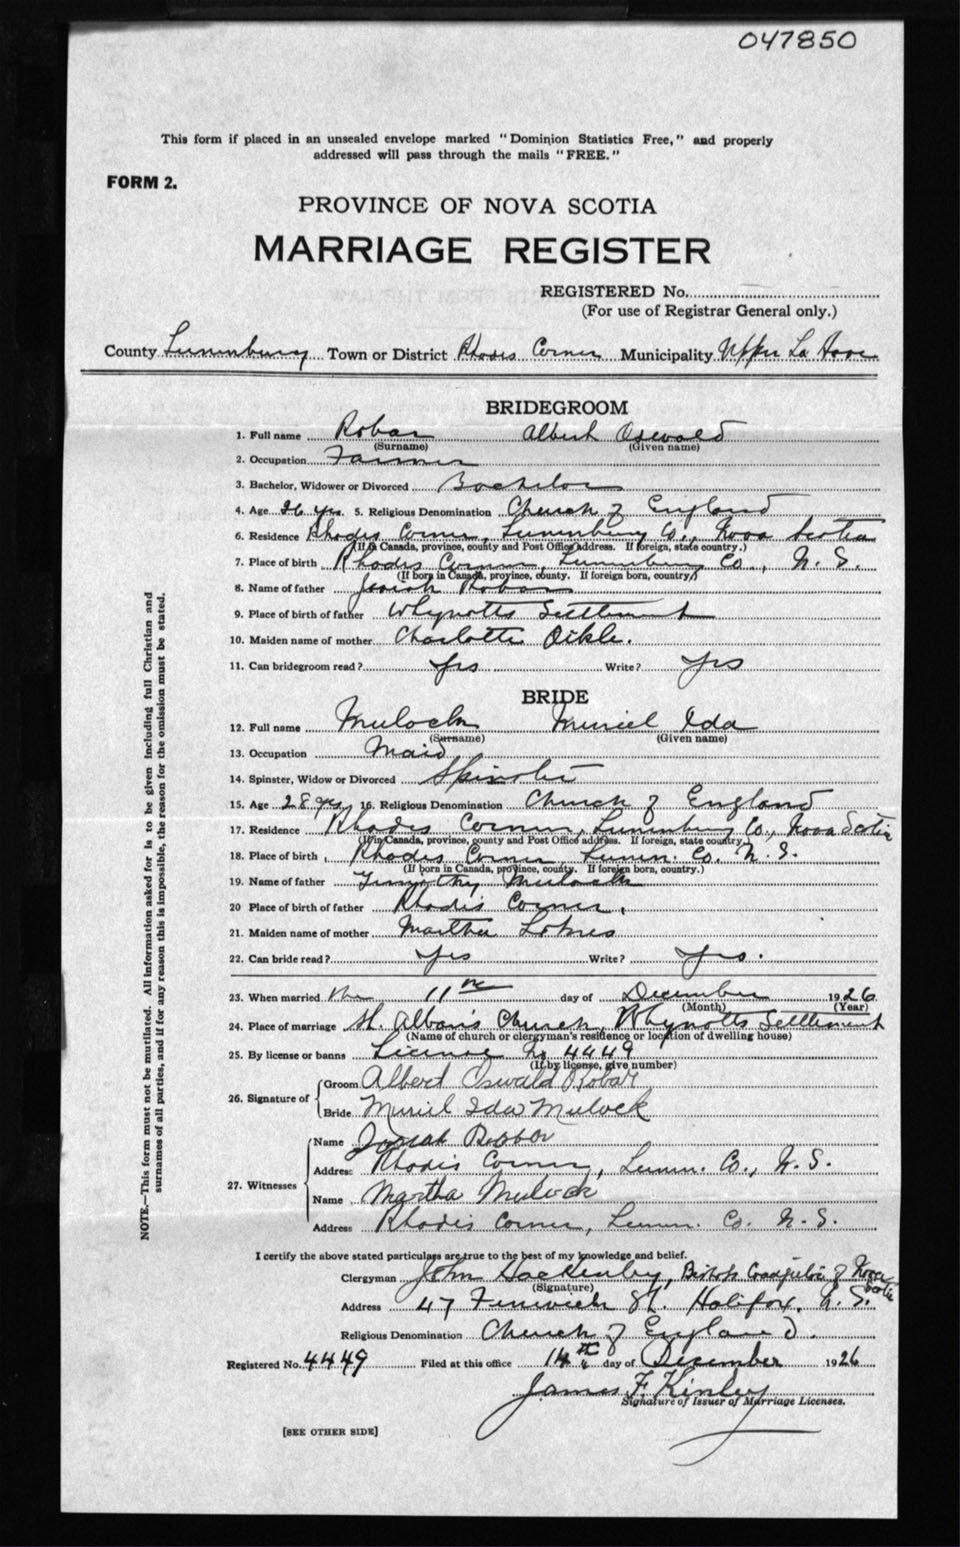 047850
This form if placed in an unsealed envelope marked "Dominion Statistics Free," and properly
addressed will pass through the mails "FREE."
FORM 2.
PROVINCE OF NOVA SCOTIA
MARRIAGE REGISTER
REGISTERED No.
(For use of Registrar General only.)
County Lunenburg Town or District Rhodes Corner Municipality Upper La Have
BRIDEGROOM
1. Full name Robar Albert Oswald
(Surname) (Given name)
2. Occupation Farmer
3. Bachelor, Widower or Divorced Bachelor
4. Age 26 yrs. 5. Religious Denomination Church of England
6. Residence Rhodes Corner, Lunenburg Co., Nova Scotia
(If in Canada, province, county and Post Office address. If foreign, state country.)
7. Place of birth Rhodes Corner, Lunenburg Co., N. S.
(If born in Canada, province, county. If foreign born, country.)
8. Name of father Josiah Robar
9. Place of birth of father Whynotts Settlement
10. Maiden name of mother Charlotte Oikle.
11. Can bridegroom read? Yes Write? Yes
BRIDE
12. Full name Mulock Muriel Ida
(Surname) (Given name)
13. Occupation Maid
14. Spinster, Widow or Divorced Spinster
15. Age 28 yrs 16. Religious Denomination Church of England
17. Residence Rhodes Corner, Lunenburg Co., Nova Scotia
(If in Canada, province, county and Post Office address. If foreign, state country.)
18. Place of birth Rhodes Corner, Lunen. Co. N. S.
(If born in Canada, province, county. If foreign born, country.)
19. Name of father Timothy Mulock
20 Place of birth of father Rhodes Corner.
21. Maiden name of mother Martha Lohnes
22. Can bride read? Yes Write? Yes.
23. When married the 11th day of December 1926
(Month) (Year)
24. Place of marriage St. Alban's Church, Whynotts Settlement
(Name of church or clergyman's residence or location of dwelling house)
25. By license or banns License No 4449
(If by license, give number)
26. Signature of Groom Albert Oswald Robar
Bride Muriel Ida Mulock
27. Witnesses Name Josiah Robar
Address Rhodes Corner, Lunen. Co., N. S.
Name Martha Mulock
Address Rhodes Corner, Lunen. Co. N. S.
I certify the above stated particulars are true to the best of my knowledge and belief.
Clergyman John Hackenley, Bishop Coadjutor of Nova Scotia
(Signature)
Address 47 Fenwick St. Halifax, N. S.
Religious Denomination Church of England.
Registered No. 4449 Filed at this office 14th day of December 1926
James F. Kinley
Signature of Issuer of Marriage Licenses.
[SEE OTHER SIDE]
NOTE.—This form must not be mutilated. All information asked for is to be given including full Christian and
surnames of all parties, and if for any reason this is impossible, the reason for the omission must be stated.